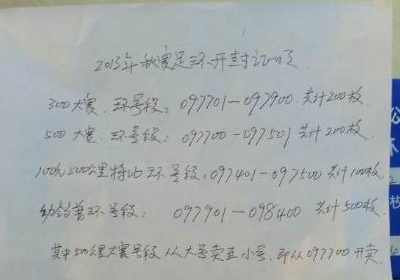 2013年秋赛足环开封证明
300大赛.环号段:097701—097900.共计200枚.
500大赛.环号段:097700—097501共计200枚.
公里特比环号段:097401—097500共计100枚.
幼鸽赛环号段:097901—098400.共计500枚.
其中500公里大赛号段从大号卖至小号.即从097700开卖.